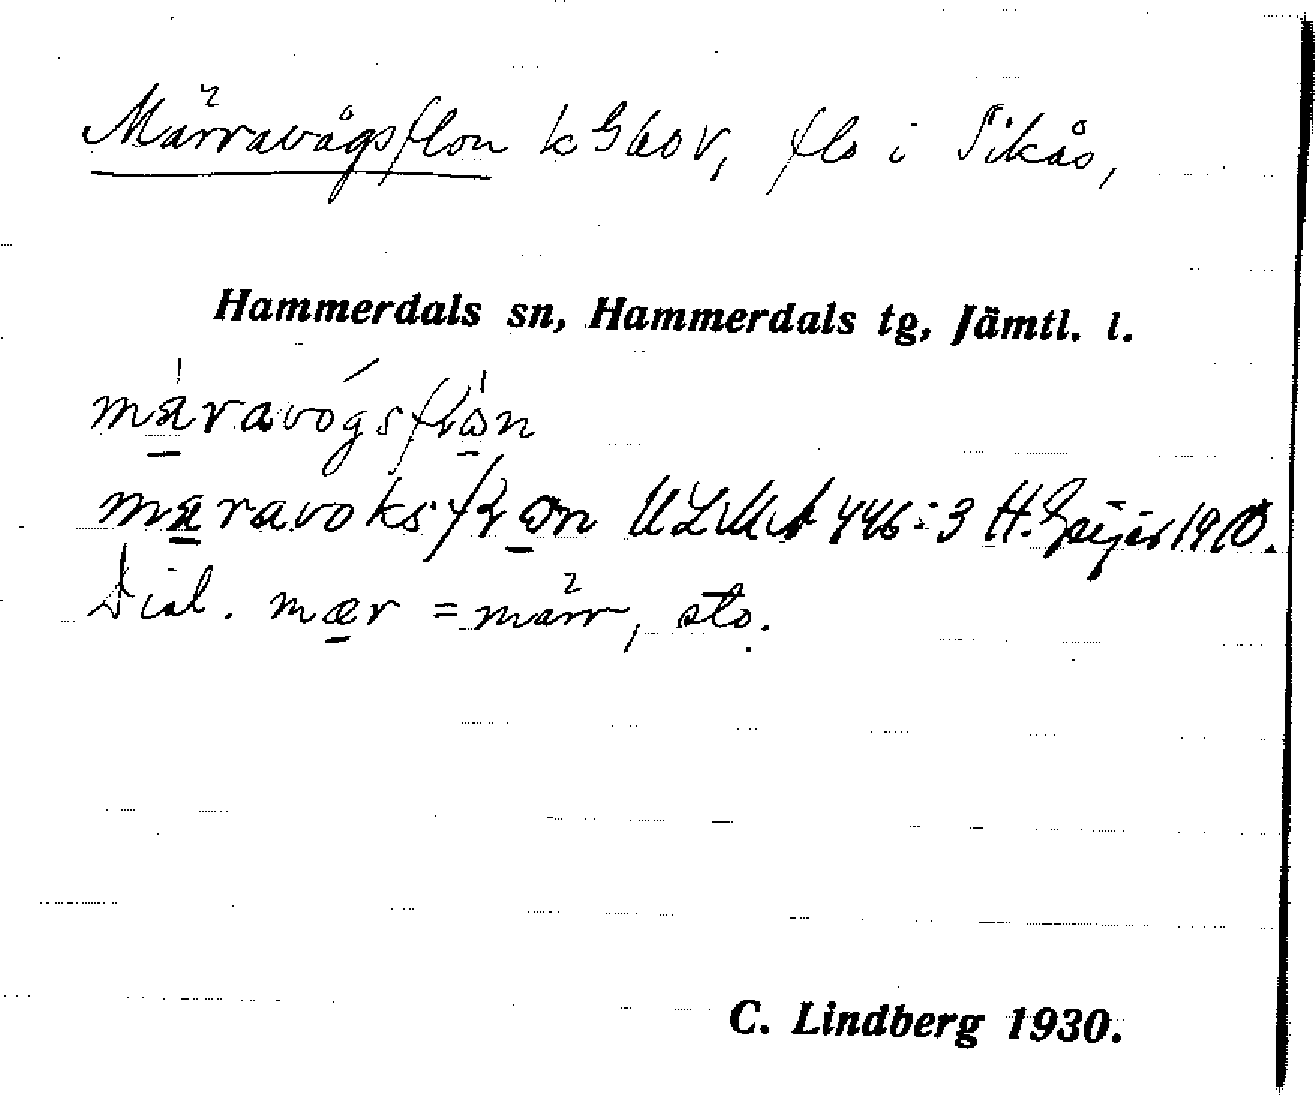 Märravågsflon k G60V, flo i Sikås,
Hammerdals sn, Hammerdals tg, Jämtl. l.
mæravógsflon
mæravoksflon ULMA 446:3 H. Geijer 1910.
Dial. mær = märr, sto.
C. Lindberg 1930.